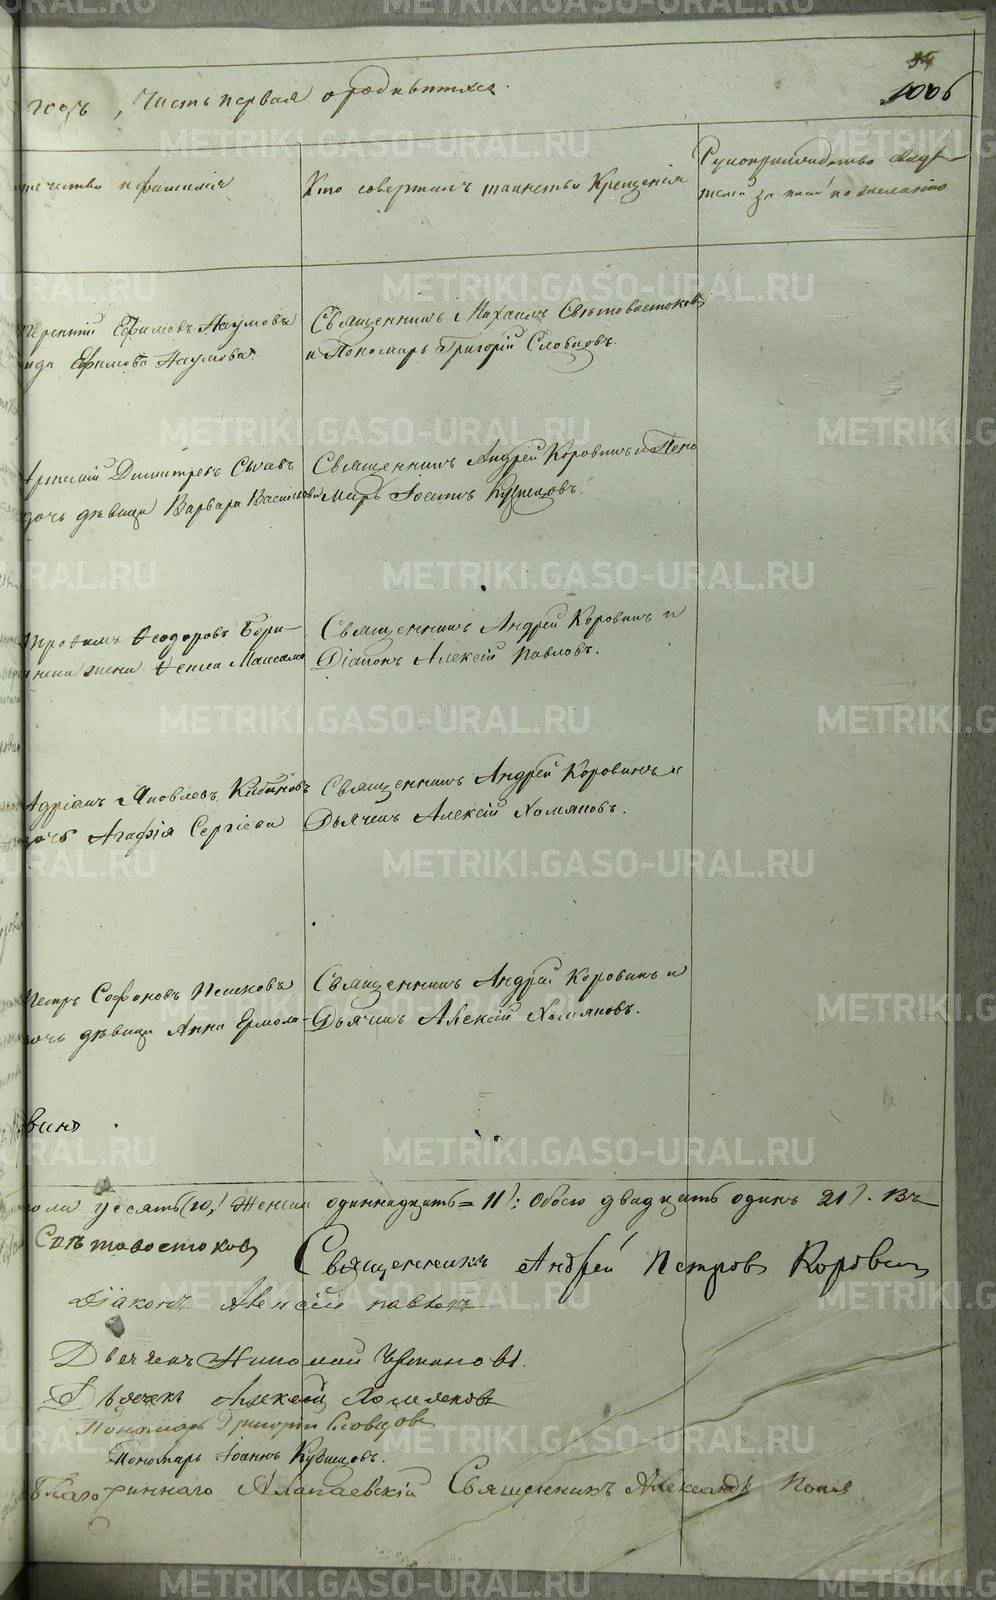 годъ, Часть первая о родившихся.
95
1006
отчество и фамилія
Кто совершалъ таинство Крещенія
Рукоприкладство свидѣ-
телей за писи по желанію
Терентій Ефимовъ Наумовъ
Ефимова Наумова.
Священникъ Михаилъ Свѣтовостоковъ
и Пономарь Григорій Словцовъ.
Димитріевъ Сычавъ
дочь дѣвица Варвара Василь
Священникъ Андрей Коровинъ и Поно
марь Іоаннъ Кузнецовъ.
Трофимъ Ѳеодоровъ Бори-
жена Ѳекла Максимо
Священникъ Андрей Коровинъ и
Діаконъ Алексій Павловъ.
Адріанъ Яковлевъ
дочь Агафія Сергіева
Священникъ Андрей Коровинъ и
Дьячекъ Алексій Хомяковъ.
Петръ Софоновъ
дочь дѣвица Анна Ермола-
Священникъ Андрей Коровинъ и
Дьячекъ Алексій Хомяковъ.
винъ
десять (10,) Женска одиннадцать = 11): Обоего двадцать одинъ 21). Въ
Свѣтовостоковъ
Священникъ Андрей Петровъ Коровинъ
Діаконъ Алексій Павловъ
Дьячекъ Николай
Дьячекъ Алексѣй Хомяковъ
Пономарь Григорій Словцовъ
Пономарь Іоаннъ Кузнецовъ.
Благочинный Алапаевскій Священникъ Александръ Поповъ
METRIKI.GASO-URAL.RU